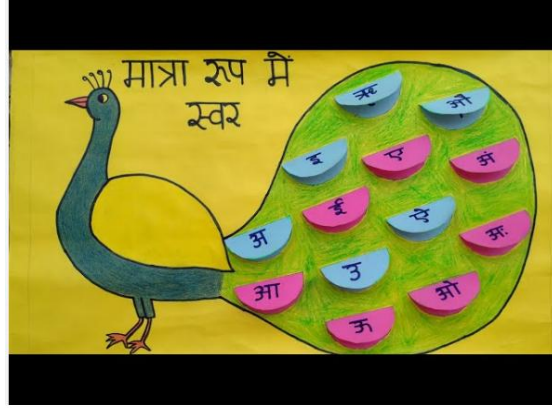 मात्रा रूप में
स्वर
ऋ औ
इ ए अं
ई ऐ
अ अः
उ
आ ओ
ऊ